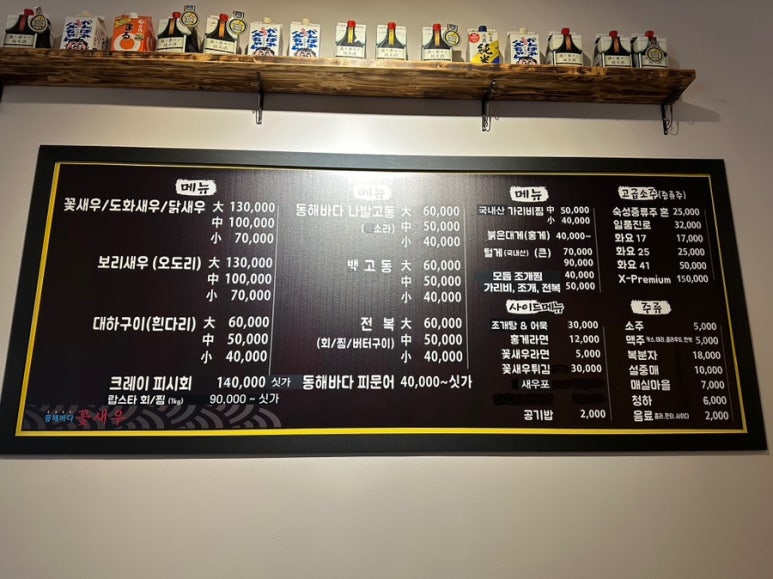 메뉴
꽃새우/도화새우/닭새우 大 130,000
中 100,000
小 70,000
보리새우 (오도리) 大 130,000
中 100,000
小 70,000
대하구이(흰다리) 大 60,000
中 50,000
小 40,000
크레이 피시회 140,000 싯가
랍스타 회/찜 (1kg) 90,000 ~ 싯가
동해바다 꽃새우
메뉴
동해바다 나발고동 大 60,000
( 소라) 中 50,000
小 40,000
백 고 동 大 60,000
中 50,000
小 40,000
전 복 大 60,000
(회/찜/버터구이) 中 50,000
小 40,000
동해바다 피문어 40,000~싯가
메뉴
국내산 가리비찜 中 50,000
小 40,000
붉은대게(홍게) 40,000~
털게 (국내산) (큰) 70,000
90,000
모듬 조개찜 40,000
가리비, 조개, 전복 50,000
사이드메뉴
조개탕 & 어묵 30,000
홍게라면 12,000
꽃새우라면 5,000
꽃새우튀김 30,000
새우포
공기밥 2,000
고급소주(증류주)
숙성증류주 혼 25,000
일품진로 32,000
화요 17 17,000
화요 25 25,000
화요 41 50,000
X-Premium 150,000
주류
소주 5,000
맥주 카스,테라,클라우드,한맥 5,000
복분자 18,000
설중매 10,000
매실마을 7,000
청하 6,000
음료 콜라,환타,사이다 2,000